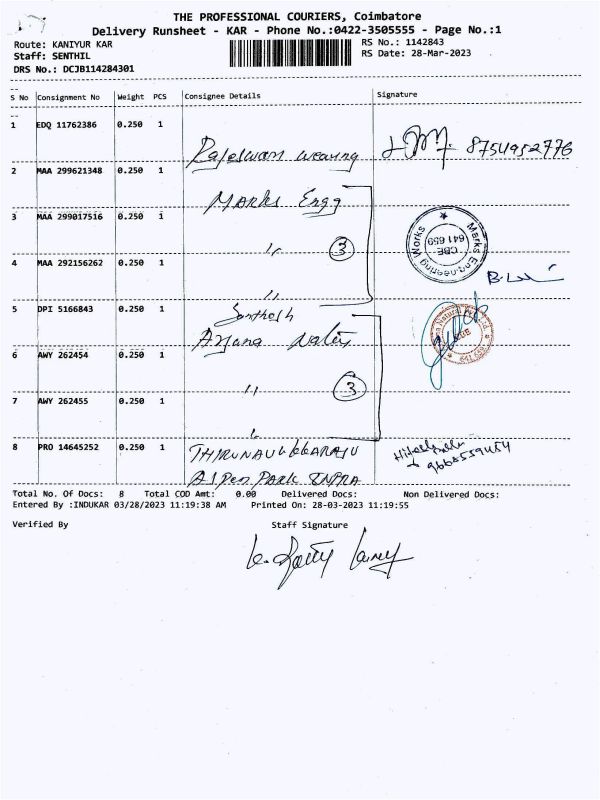 THE PROFESSIONAL COURIERS, Coimbatore
Delivery Runsheet - KAR - Phone No.:0422-3505555 - Page No.:1
Route: KANIYUR KAR
RS No.: 1142843
Staff: SENTHIL
RS Date: 28-Mar-2023
DRS No.: DCJB114284301
S No Consignment No Weight PCS Consignee Details Signature
1 EDQ 11762386 0.250 1
weaving 8754952776
2 MAA 299621348 0.250 1
Marks Engg
3 MAA 299017516 0.250 1
Marks Engineering Works
CBE
641 659
3
4 MAA 292156262 0.250 1
5 DPI 5166843 0.250 1
Santhosh
6 AWY 262454 0.250 1
3
7 AWY 262455 0.250 1
8 PRO 14645252 0.250 1
Total No. Of Docs: 8 Total COD Amt: 0.00 Delivered Docs: Non Delivered Docs:
Entered By :INDUKAR 03/28/2023 11:19:38 AM Printed On: 28-03-2023 11:19:55
Verified By Staff Signature